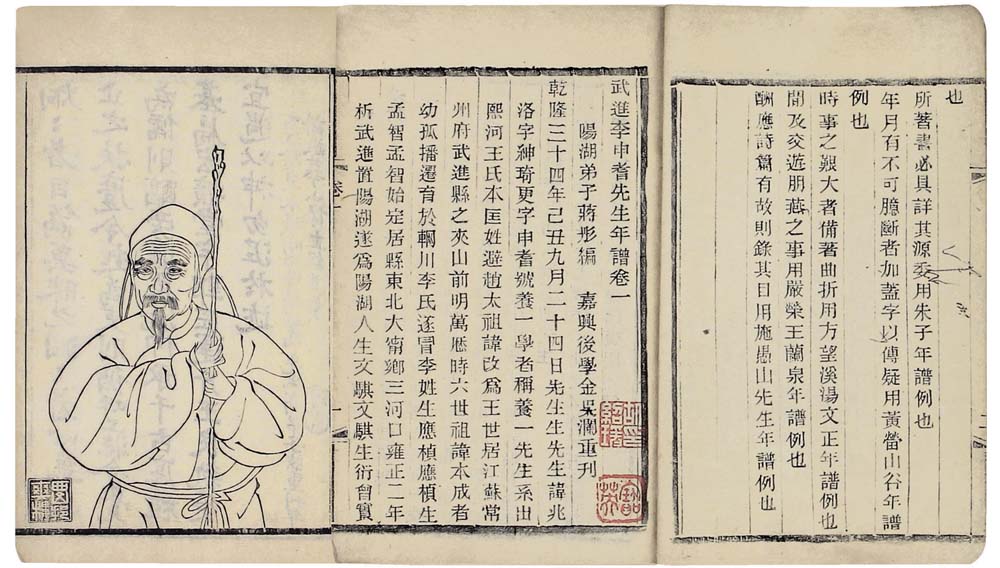 也
所著書必具詳其源委用朱子年譜例也
年月有不可臆斷者加蓋字以傳疑用黃㽦山谷年譜
例也
時事之艱大者備著曲折用方望溪湯文正年譜例也
聞及交遊朋燕之事用嚴榮王蘭泉年譜例也
酬應詩篇有故則錄其目用施愚山先生年譜例也
武進李申耆先生年譜卷一
陽湖弟子蔣彤編　嘉興後學金吳瀾重刊
乾隆三十四年己丑九月二十四日先生生先生諱兆
洛字紳琦更字申耆號養一學者稱養一先生系出
熙河王氏本匡姓避趙太祖諱改爲王世居江蘇常
州府武進縣之夾山前明萬厯時六世祖諱本成者
幼孤播遷育於輞川李氏遂冒李姓生應楨應楨生
孟智孟智始定居縣東北大甯鄉三河口雍正二年
析武進置陽湖遂爲陽湖人生文騏文騏生衍曾實